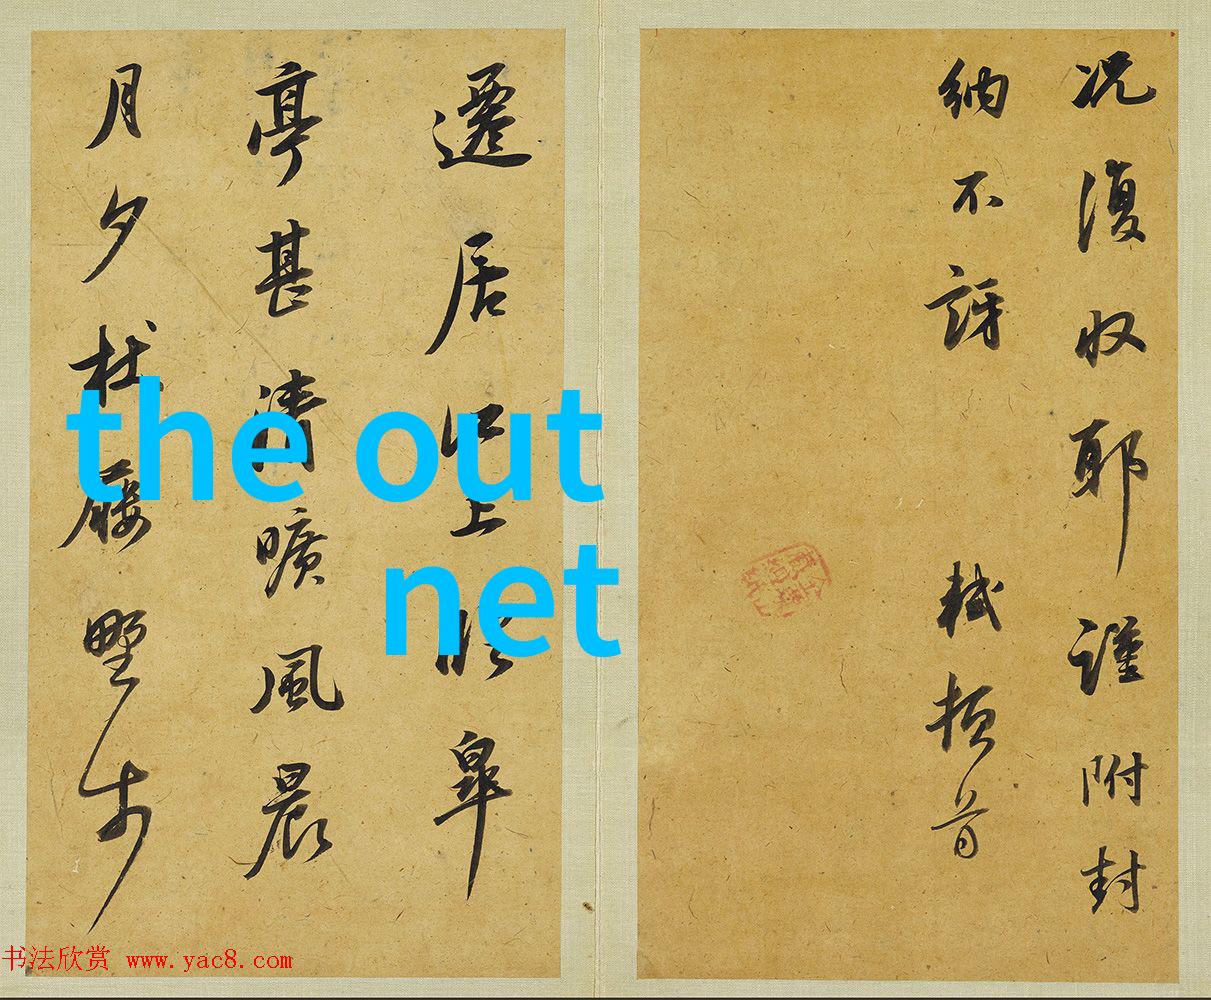 况復收耶謹附封
納不訝 軾頓首
遷居江上臨皐
亭甚清曠風晨
月夕杖屨野步
the out
net
书法欣赏 www.yac8.com